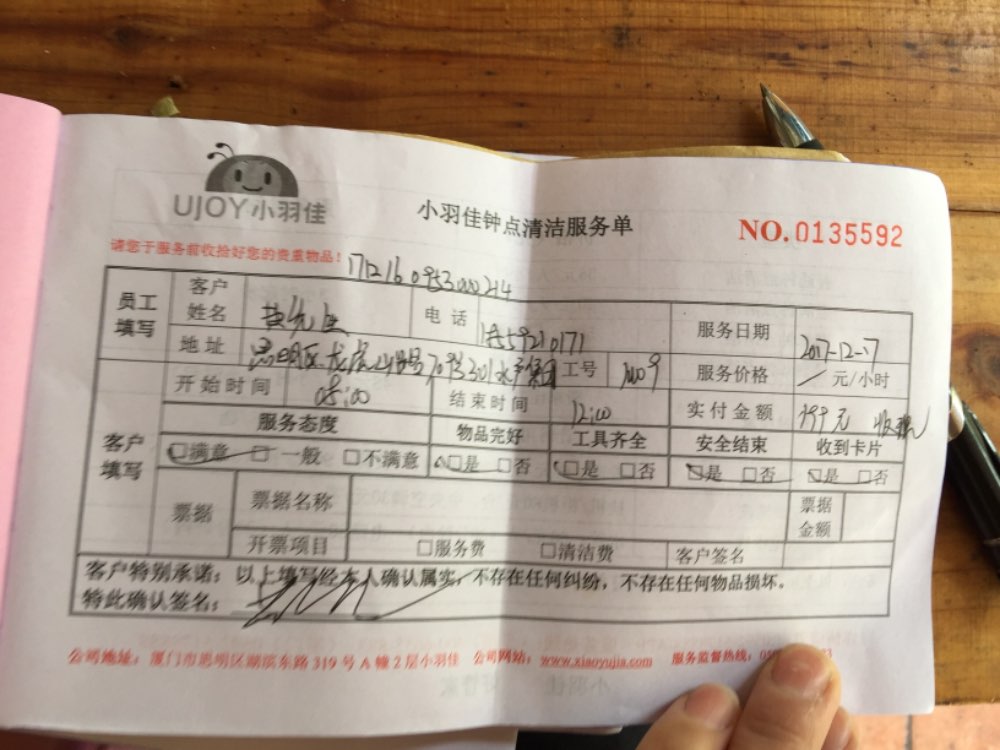 UJOY小羽佳
小羽佳钟点清洁服务单
NO. 0135592
请您于服务前收拾好您的贵重物品！
1712160953000214
员工填写 客户姓名 黄先生 电话 服务日期 2017-12-17
地址 思明区 301 工号 服务价格 元/小时
开始时间 08:00 结束时间 12:00 实付金额 199元
客户填写 服务态度 物品完好 工具齐全 安全结束 收到卡片
□满意 □一般 □不满意 □是 □否 □是 □否 □是 □否 □是 □否
票据 票据名称 票据金额
开票项目 □服务费 □清洁费 客户签名
客户特别承诺：以上填写经本人确认属实，不存在任何纠纷，不存在任何物品损坏。
特此确认签名：
公司地址：厦门市思明区湖滨东路319号A幢2层小羽佳 公司网站：www.xiaoyujia.com 服务监督热线：